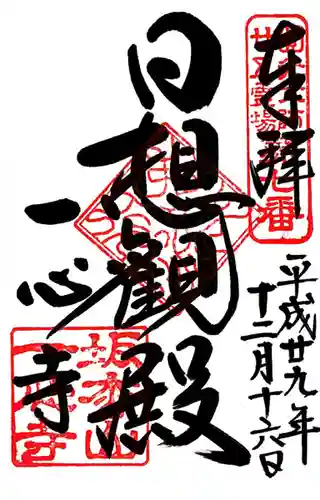 奉拝
廿五霊場
日想観殿
一心寺
坂松山
一心寺
平成廿九年
十二月十六日